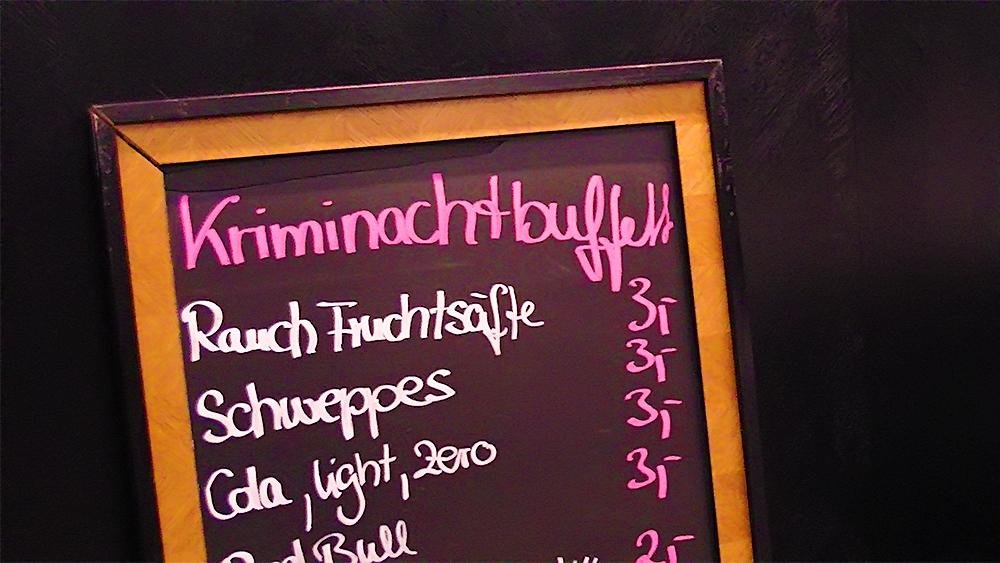 Kriminachtbuffett
Rauch Fruchtsäfte 3,-
Schweppes 3,-
Cola, light, zero 3,-
Red Bull 3,-